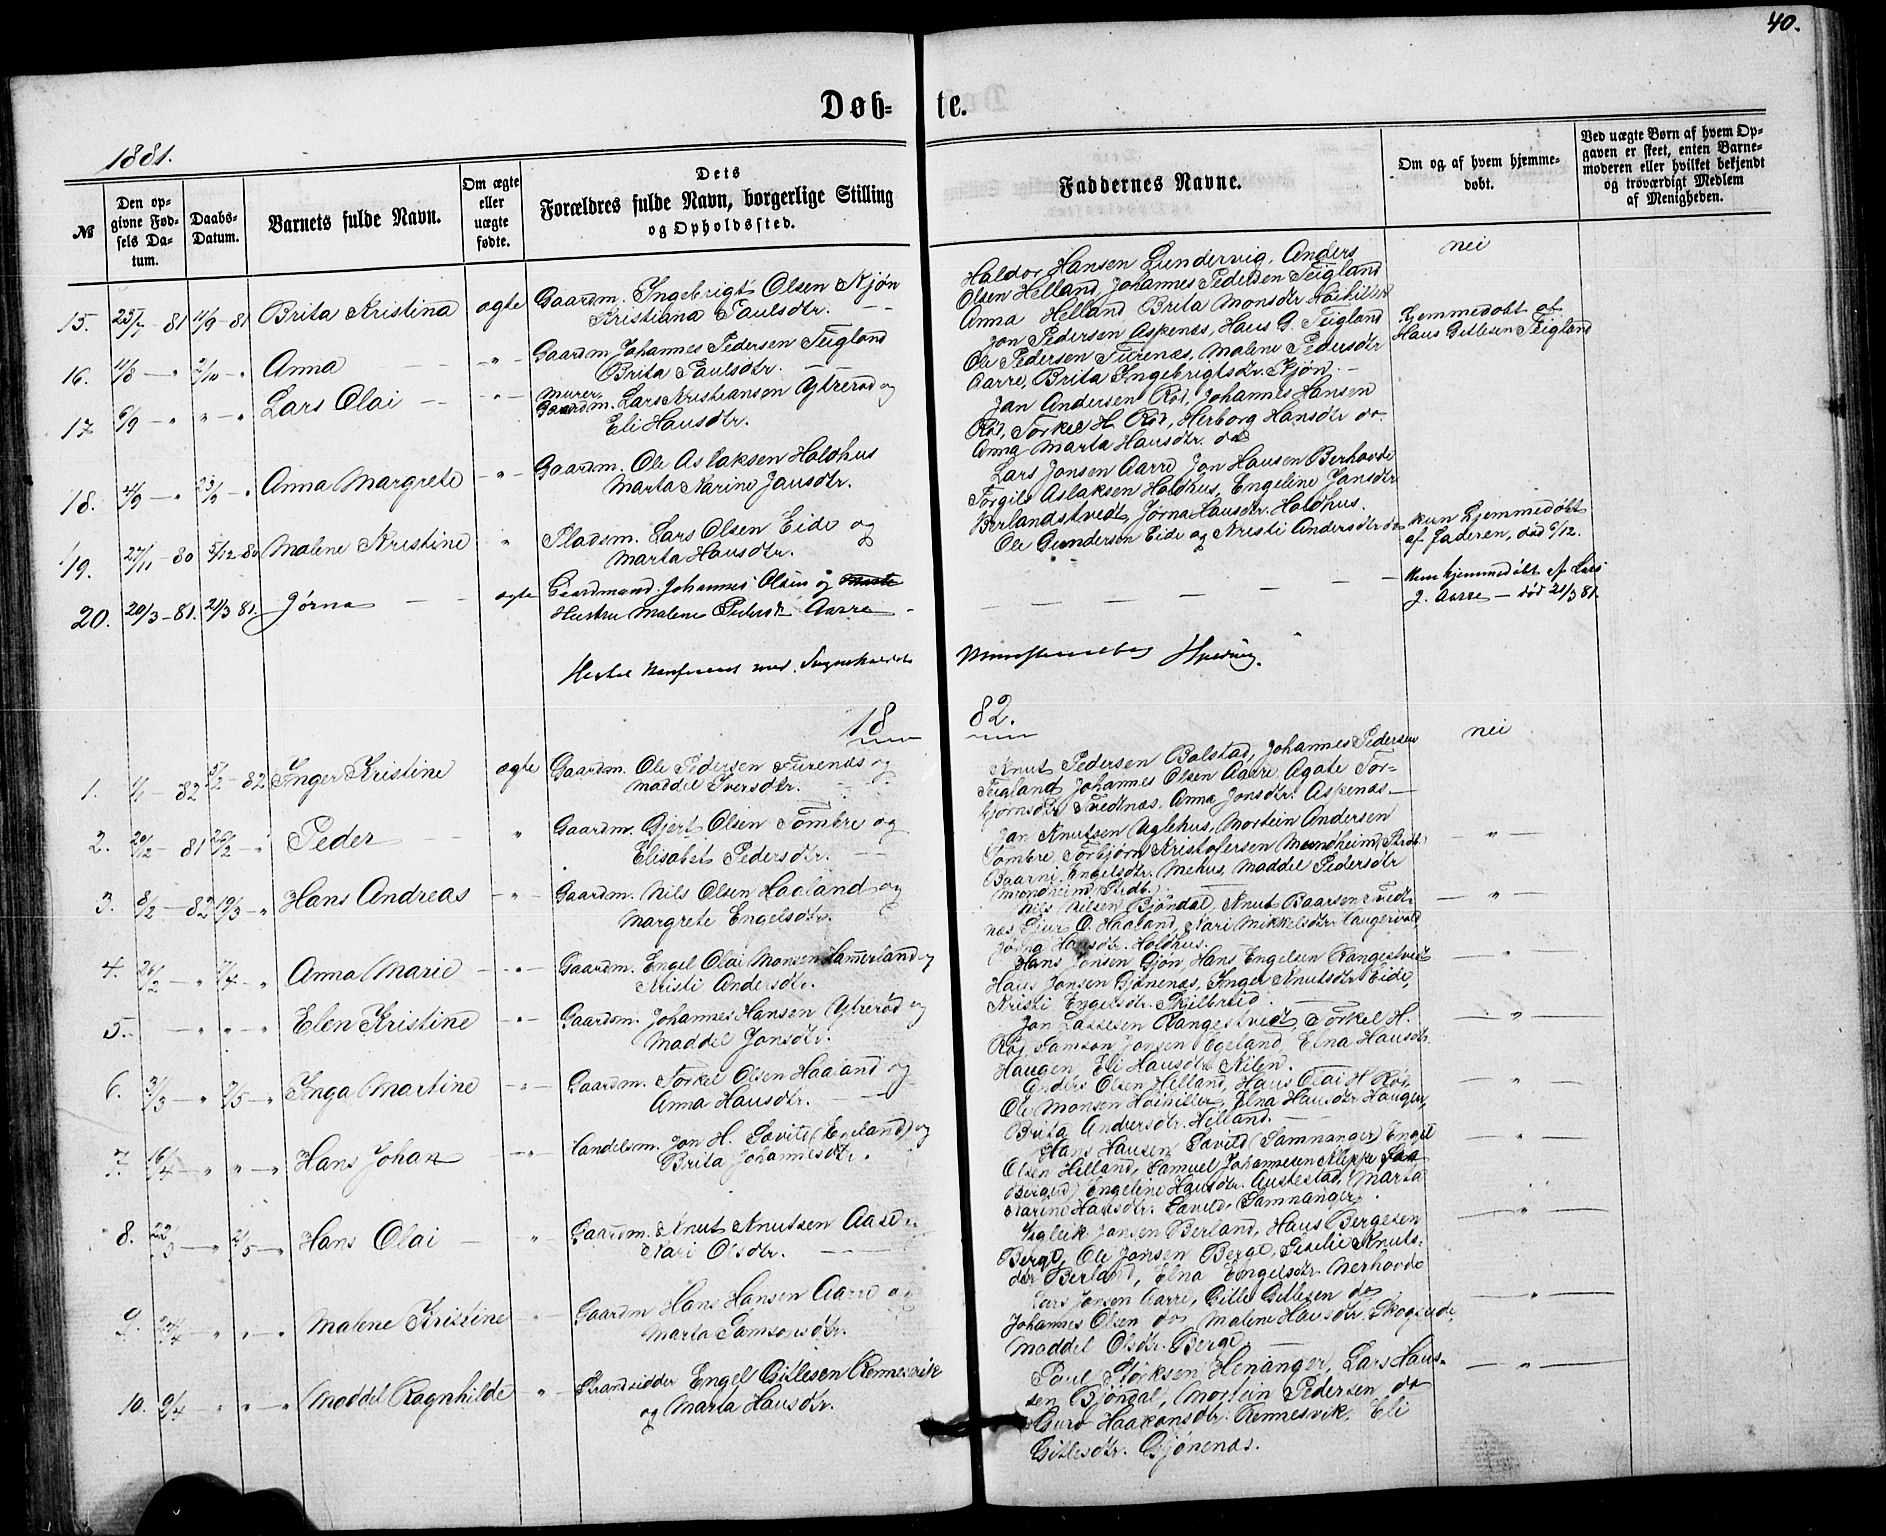 40.
Døb-te.
1881.
№
Den opgivne Fødsels Datum.
Daabs-Datum.
Barnets fulde Navn.
Om ægte eller uægte fødte.
Dets Forældres fulde Navn, borgerlige Stilling og Opholdssted.
Faddernes Navne.
Om og af hvem hjemmedøbt.
Ved uægte Børn af hvem Opgaven er skeet, enten Barnemoderen eller hvilket bekjendt og troværdigt Medlem af Menigheden.
15. 23/7 - 81 11/9 - 81 Brita Kristina ægte Gaardm. Ingebrigt Olsen Kjøn
Kristiana Paulsdtr.
Haldor Hansen Lundervig, Anders
Olsen Helland, Johannes Pedersen Teigland
Anna Helland Brita Monsdtr
nei
16. 11/8 - " 2/10 - " Anna - " - Gaardm. Johannes Pedersen Teigland
Brita Paulsdtr.
Jon Pedersen Askenæs, Hans G. Teigland
Ole Pedersen Furenæs, Malene Pedersdtr
Aarre, Brita Ingebrigtsdr. Kjøn.
Hjemmedøbt af
Hans Gitlesen Teigland
17 6/9 - " " - " Lars Olai - " - Murer
Gaardm. Lars Kristiansen Ytrerød og
Eli Hansdtr.
Jan Andersen Rød, Johannes Hansen
Rød, Torkel H. Rød, Herborg Hansdtr do
Anna Marta Hansdtr. do
18. Anna Margrete - " - Gaardm. Ole Aslaksen Holdhus
Marta Karine Jansdtr.
Lars Jonsen Aarre Jon Hansen Berhovde
Torgils Aslaksen Holdhus, Engeline Jansdtr
Berlandstvedt, Jørna Hansdtr. Holdhus.
19. 27/11 - 80 5/12 - 80 Malene Kristine " Pladsm. Lars Olsen Eide og
Marta Hansdtr.
Ole Gundersen Eide og Kristi Andersdtr do
kun hjemmedøbt
af faderen, død 6/12.
20. 20/3 - 81. 21/3 81. Jørna ægte Gaardmand Johannes Olsen og
Hustru Malene Pedersdtr Aarre
Kun hjemmedøbt af Lars
J. Aarre - død 21/3 81.
1882.
1. 1/1 - 82 5/2 - 82 Inger Kristine ægte Gaardm. Ole Pedersen Furenæs og
Maddel Iversdtr.
Knut Pedersen Bolstad, Johannes Pedersen
Teigland Johannes Olsen Aarre, Agate Tor-
bjørnsdtr Tvedtnæs, Anna Jonsdtr. Askenæs
nei
2. 20/12 - 81 26/2 - " Peder " Gaardm. Gjert Olsen Tombre og
Elisabet Pedersdtr.
Jan Knutsen Uglehus, Mortein Andersen
Tombre, Torbjørn Kristofersen Mundheim
Engelsdtr. Mehus, Maddel Pedersdtr
- " -
3. 8/2 - 82 19/3 - " Hans Andreas - " - Gaardm. Nils Olsen Haaland og
Margrete Engelsdtr.
Nils Nilsen Bjøndal, Knut Baarsen Tvedt-
næs Sjur O. Haaland, Kari Mikkelsdtr.
Jørna Hansdtr. Holdhus.
- " -
4. 26/2 - " 7/4 - " Anna Marie - " - Gaardm. Engel Olai Monsen Hammerland og
Kristi Andersdtr.
Hans Jonsen Gjøn, Hans Engelsen Rangestvedt
Hans Jansen Gjønenæs, Inger Knutsdtr Eide,
Kristi Engelsdtr. Skilbreid.
- " -
5. - " " - " Elen Kristine - " - Gaardm. Johannes Hansen Ytrerød og
Maddel Jonsdtr.
Jon Lassesen Rangestvedt, Torkel H.
Rød, Samson Jonsen Egeland, Elna Hansdtr
Haugen, Eli Hansdtr. Kilen.
- " -
6. 31/3 - " 2/5 - " Inga Martine - " - Gaardm. Torkel Olsen Haaland og
Anna Hansdtr.
Anders Olsen Helland, Hans Olai H Rød
Ole Monsen Høihiller, Elna Hansdtr Haugen,
Brita Andersdtr. Helland.
- " -
7. 16/4 - " " - " Hans Johan - " - Handelsm. Jon H. Tavild (Egeland) og
Brita Johannesdtr.
Hans Hansen Tavild (Samnanger) Engel
Olsen Helland, Samuel Johannesen Kleppe
Engeline Hansdtr. Austestad, Marta
Karine Hansdtr. Tavild, Samnanger.
- " -
8. 2/5 - " Hans Olai " Gaardm. Knut Knutsen Aase og
Kari Olsdtr.
Jonsen Berland, Hans Bergesen
Berge, Ole Jonsen Berge, Siselie Knuts-
dtr Berland, Elna Engelsdtr. Nerhovde
- " -
9. - " " - " Malene Kristine " Gaardm Hans Hansen Aarre og
Marta Samsonsdtr.
Lars Jonsen Aarre, Gitle Gitlesen do
Johannes Olsen do, Malene Hansdtr.
Maddel Olsdtr. Berge.
- " -
10. 9/4 " " - " Maddel Ragnhilde " Strandsidder Engel Gitlesen Rennesvik
og Marta Hansdtr.
Paul Størksen Henanger, Lars Han-
sen Bjøndal, Mortein Pedersen do
Guro Haakonsdtr. Rennesvik, Eli
Gitlesdtr. Gjønenæs.
- " -